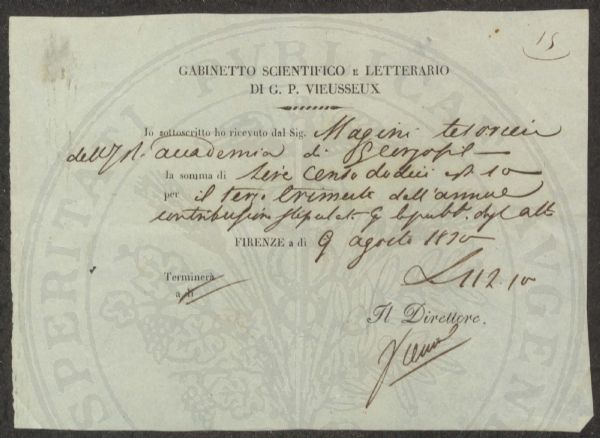 15
GABINETTO SCIENTIFICO E LETTERARIO
DI G. P. VIEUSSEUX
Io sottoscritto ho ricevuto dal Sig. Magini tesoriere
dell' accademia di Georgofili
la somma di Lire Cento dodici 10
per il terzo trimestre dell'annua
contribuzione stipulata degli atti
FIRENZE a dì 9 agosto 1830
L 112.10
Terminerà
a dì
Il Direttore.